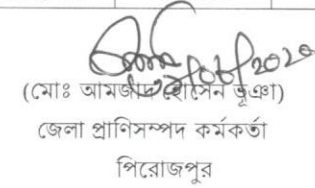 (মোঃ আমজাদ হোসেন ভূঞা)
জেলা প্রাণিসম্পদ কর্মকর্তা
পিরোজপুর